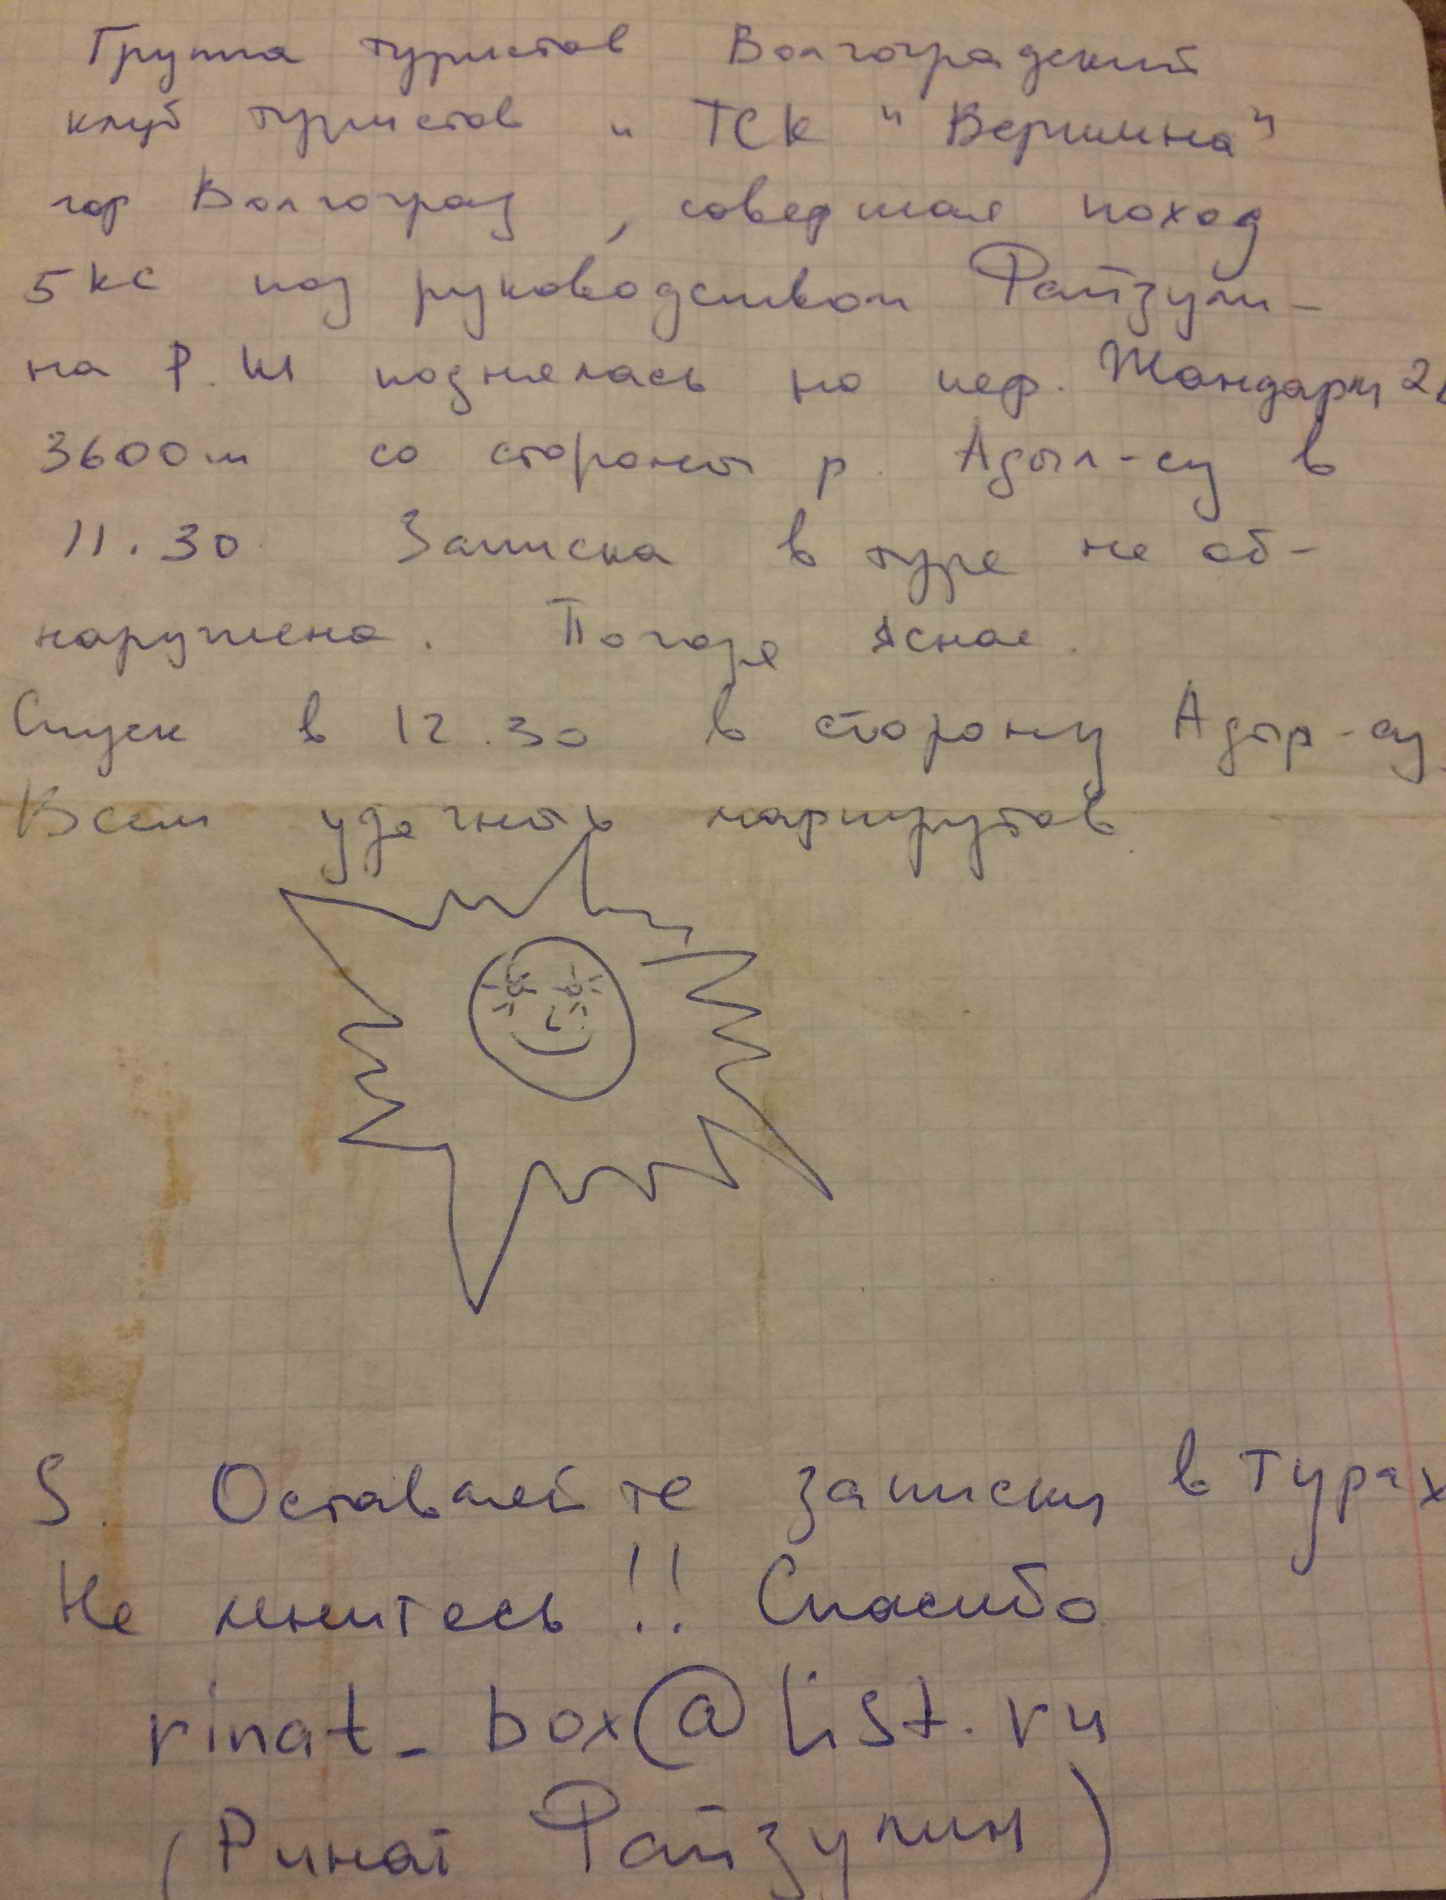 Группа туристов Волгоградский
клуб туристов и ТСК "Вершина"
гор Волгоград, совершая поход
5 кс под руководством Файзули-
на Р.Ш поднялась на пер. Жандарм 2
3600м со стороны р. Адыл-су в
11.30 Записка в туре не об-
наружена. Погода Ясная.
Спуск в 12.30 в сторону Адыр-су.
Всем удачных маршрутов
S. Оставляйте записки в турах
Не ленитесь!! Спасибо
rinat_box@list.ru
(Ринат Файзулин)